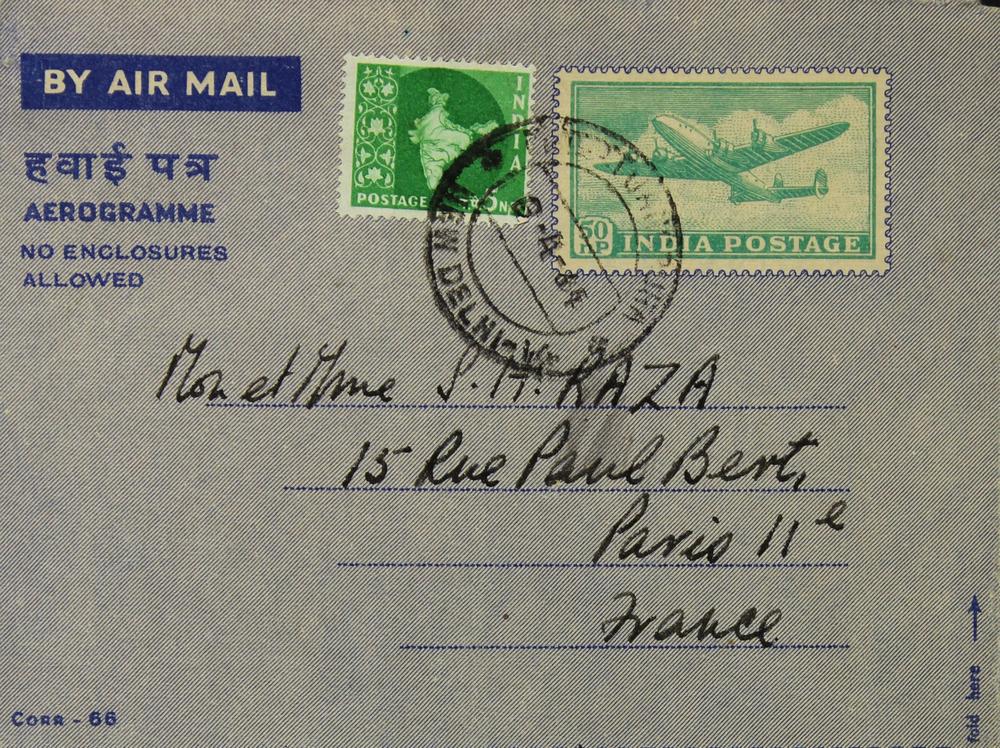 BY AIR MAIL
हवाई पत्र
AEROGRAMME
NO ENCLOSURES
ALLOWED
INDIA
POSTAGE
50 NP INDIA POSTAGE
NEW DELHI
Mon et Mme S. H. RAZA
15 Rue Paul Bert,
Paris 11e
France
CORR - 66
fold here